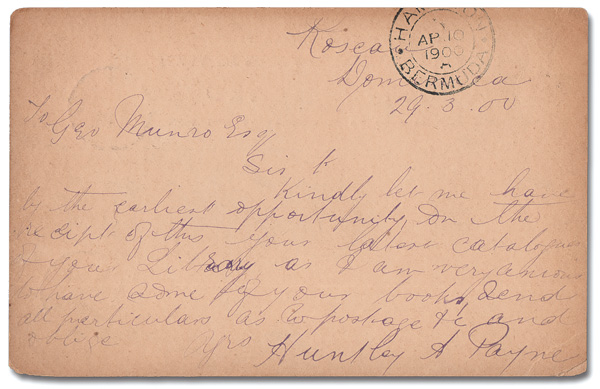 Rosea
HAMILTON
AP 10
1900
A
BERMUDA
Dominica
29.3.00
To Geo Munro Esq
Sir
Kindly let me have
by the earliest opportunity on the
receipt of this your latest catalogue
your Library as I am very anxious
to have some of your books, Send
all particulars as to postage &c and
oblige Yrs Huntley A Payne